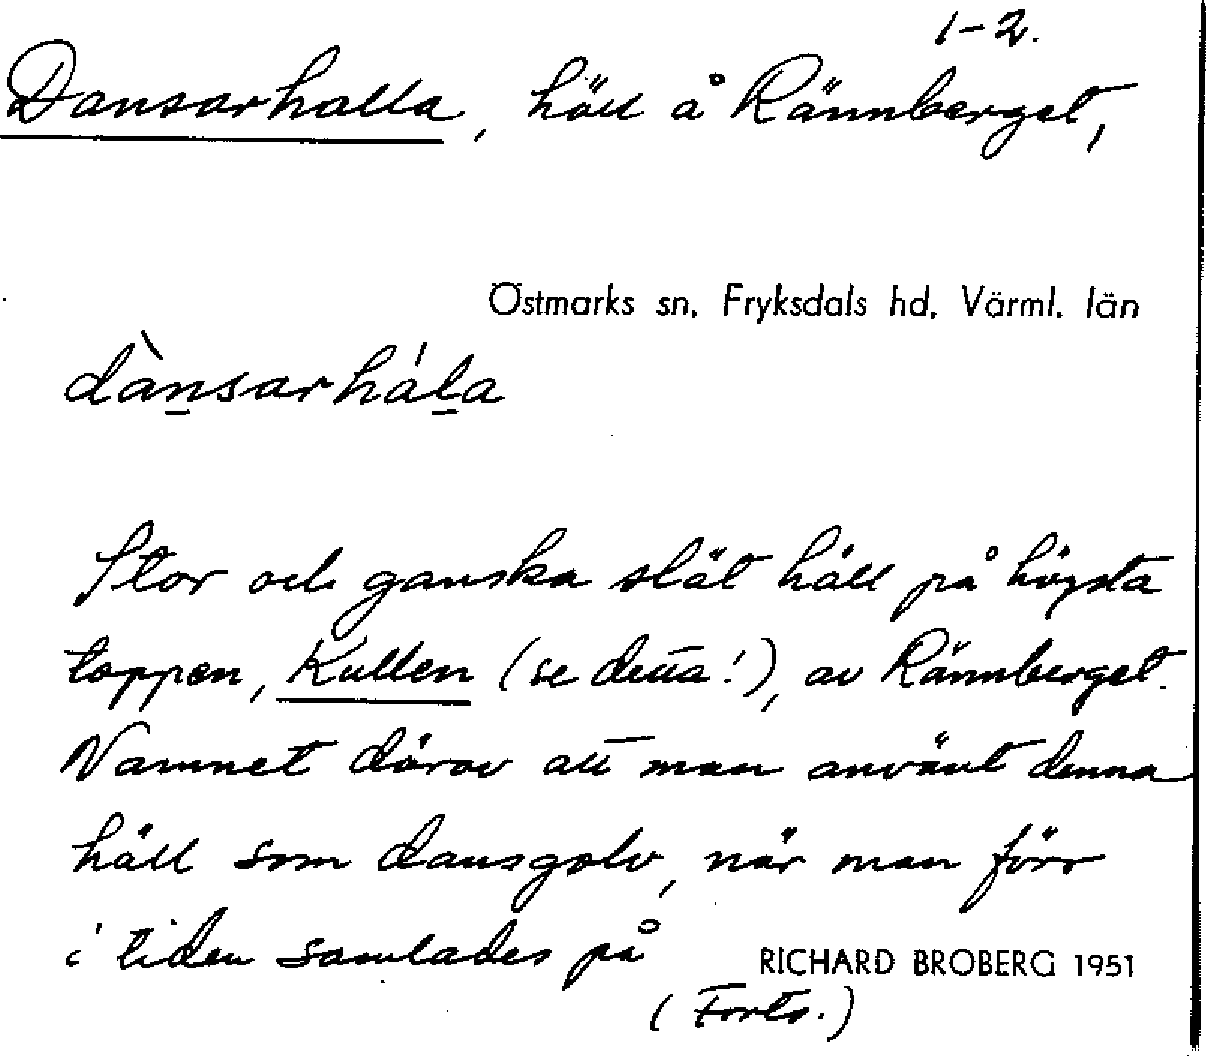 1-2.
Dansarhalla, häll å Rännberget,
Östmarks sn, Fryksdals hd, Värml. län
dànsarhála
Stor och ganska slät häll på högsta
toppen, Kullen (se detta!), av Rännberget.
Namnet därav att man använt denna
häll som dansgolv, när man förr
i tiden samlades på
RICHARD BROBERG 1951
(Forts.)